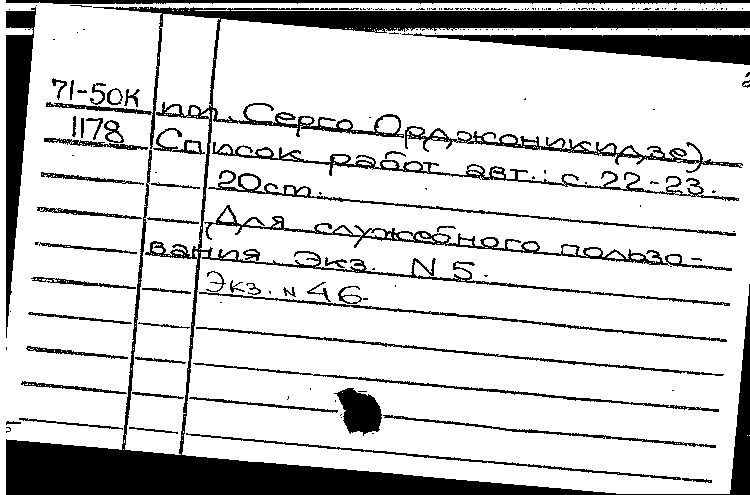 71-50к им. Серго Орджоникидзе).
1178 Список работ авт.: с. 22-23.
20cm.
(Для служебного пользо-
вания. Экз. N 5.
Экз. N 46